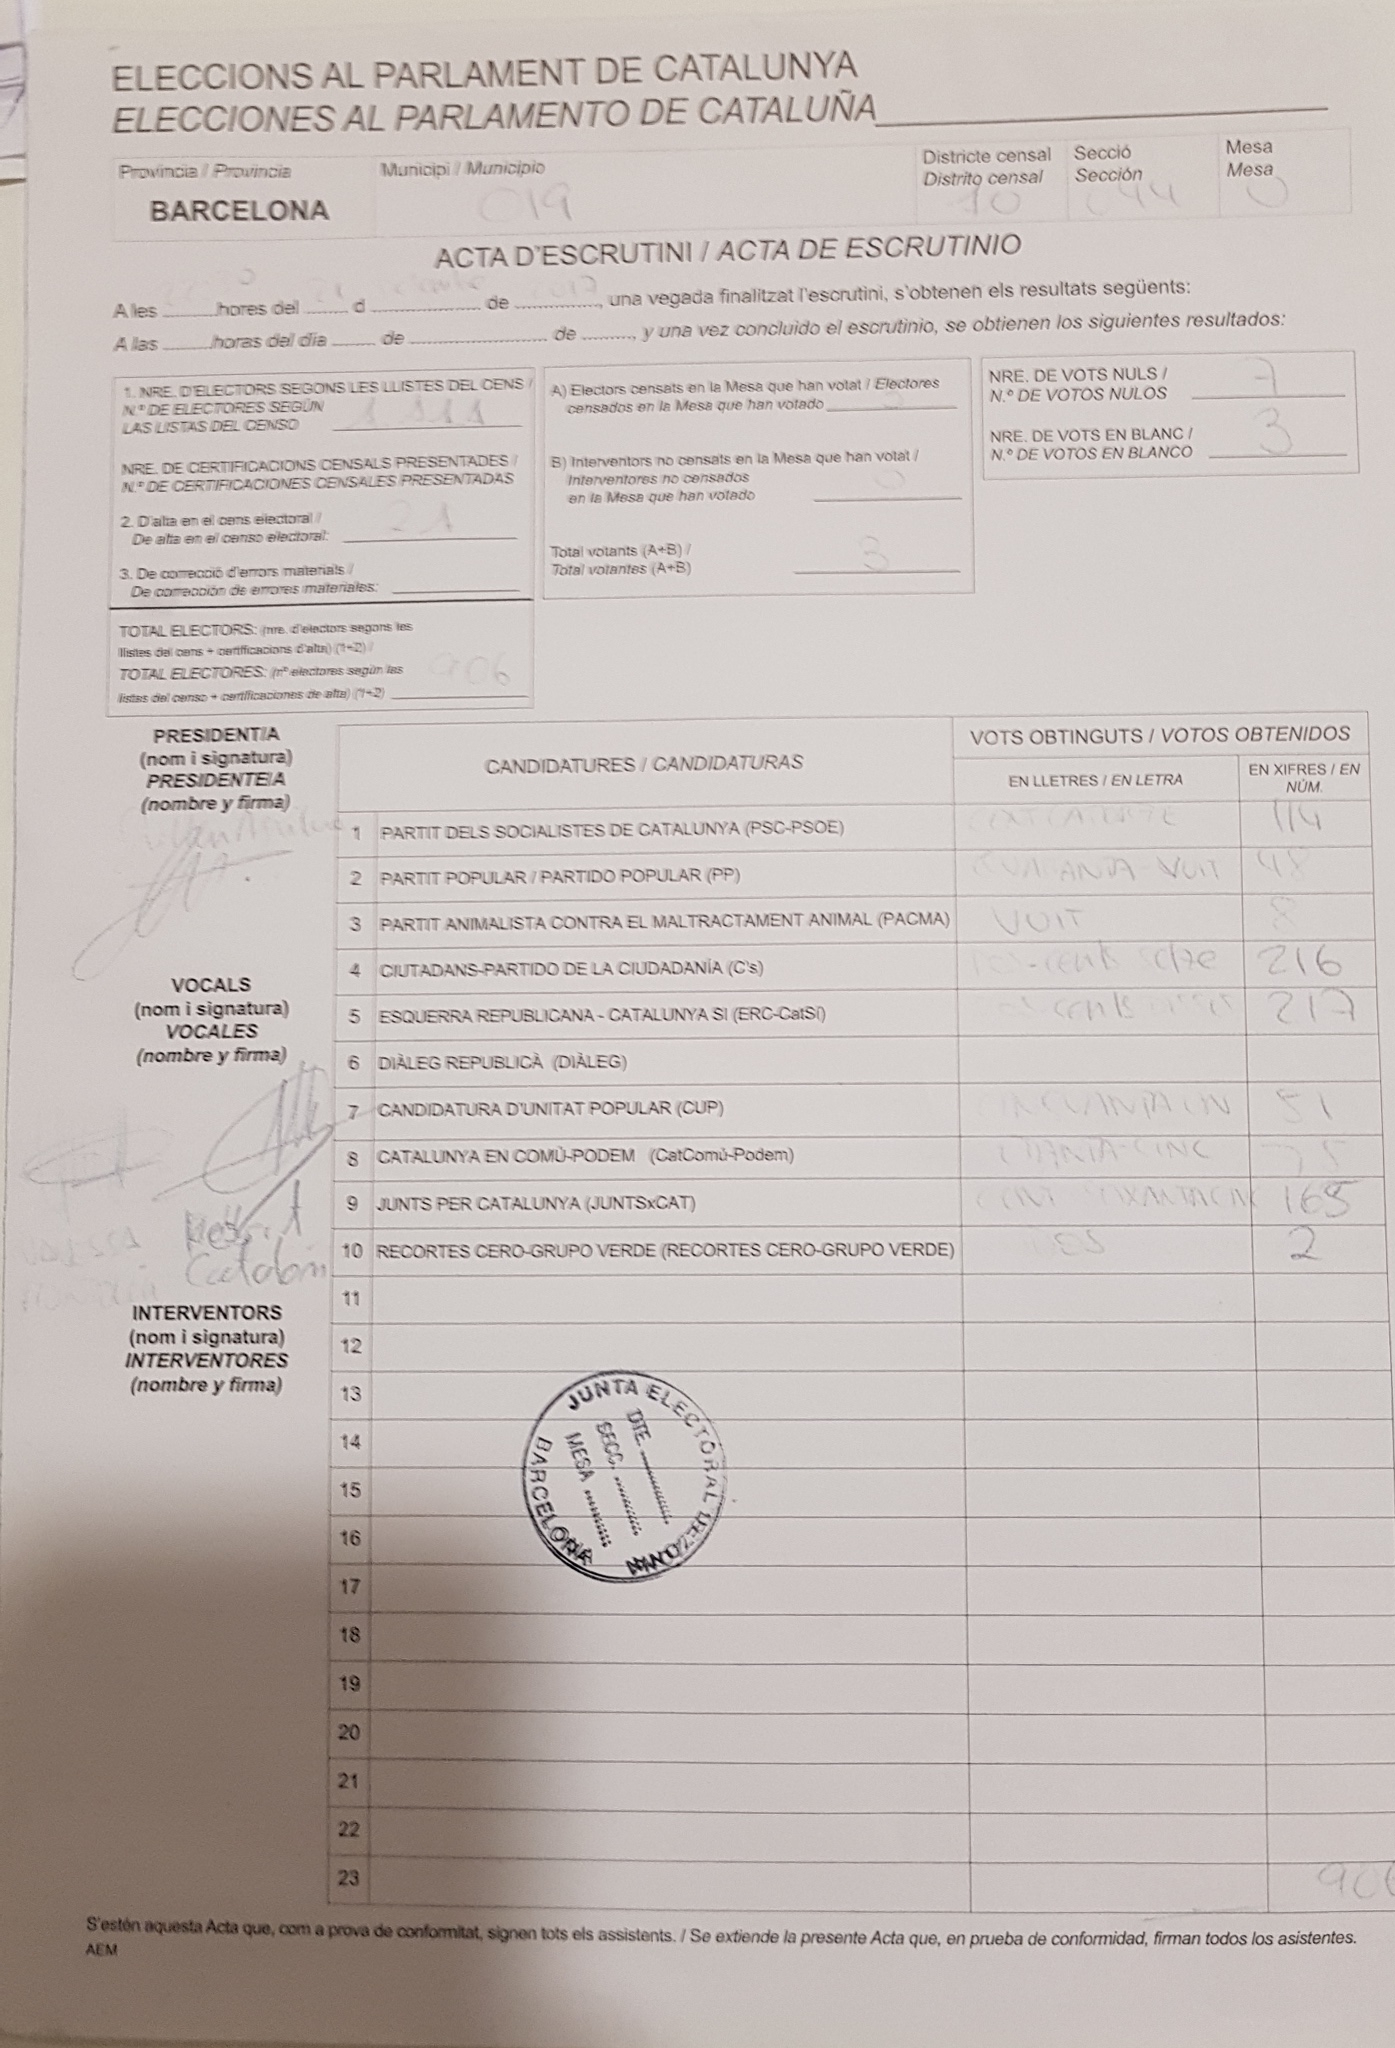 ELECCIONS AL PARLAMENT DE CATALUNYA
ELECCIONES AL PARLAMENTO DE CATALUÑA
Província / Provincia
Municipi / Municipio
Districte censal
Distrito censal
Secció
Sección
Mesa
Mesa
BARCELONA
019
10
044
U
ACTA D'ESCRUTINI / ACTA DE ESCRUTINIO
A les hores del 21 d de 2017, una vegada finalitzat l'escrutini, s'obtenen els resultats següents:
A las horas del día de de, y una vez concluido el escrutinio, se obtienen los siguientes resultados:
1. NRE. D'ELECTORS SEGONS LES LLISTES DEL CENS /
N.º DE ELECTORES SEGÚN
LAS LISTAS DEL CENSO 1111
NRE. DE CERTIFICACIONS CENSALS PRESENTADES /
N.º DE CERTIFICACIONES CENSALES PRESENTADAS
2. D'alta en el cens electoral /
De alta en el censo electoral: 21
3. De correcció d'errors materials /
De corrección de errores materiales:
TOTAL ELECTORS: (nre. d'electors segons les
llistes del cens + certificacions d'alta) (1+2) /
TOTAL ELECTORES: (nº electores según las
listas del censo + certificaciones de alta) (1+2) 906
A) Electors censats en la Mesa que han votat / Electores
censados en la Mesa que han votado 3
B) Interventors no censats en la Mesa que han votat /
Interventores no censados
en la Mesa que han votado 0
Total votants (A+B) /
Total votantes (A+B) 3
NRE. DE VOTS NULS /
N.º DE VOTOS NULOS 7
NRE. DE VOTS EN BLANC /
N.º DE VOTOS EN BLANCO 3
PRESIDENT/A
(nom i signatura)
PRESIDENTE/A
(nombre y firma)
VOCALS
(nom i signatura)
VOCALES
(nombre y firma)
VANESSA
Catalán
INTERVENTORS
(nom i signatura)
INTERVENTORES
(nombre y firma)
CANDIDATURES / CANDIDATURAS
VOTS OBTINGUTS / VOTOS OBTENIDOS
EN LLETRES / EN LETRA
EN XIFRES / EN
NÚM.
1 PARTIT DELS SOCIALISTES DE CATALUNYA (PSC-PSOE) CENT CATORZE 114
2 PARTIT POPULAR / PARTIDO POPULAR (PP) QUARANTA-VUIT 48
3 PARTIT ANIMALISTA CONTRA EL MALTRACTAMENT ANIMAL (PACMA) VUIT 8
4 CIUTADANS-PARTIDO DE LA CIUDADANÍA (C's) Dos-cents setze 216
5 ESQUERRA REPUBLICANA - CATALUNYA SI (ERC-CatSí) cents 217
6 DIÀLEG REPUBLICÀ (DIÀLEG)
7 CANDIDATURA D'UNITAT POPULAR (CUP) CINCUANTA UN 51
8 CATALUNYA EN COMÚ-PODEM (CatComú-Podem) 75
9 JUNTS PER CATALUNYA (JUNTSxCAT) CENT 165
10 RECORTES CERO-GRUPO VERDE (RECORTES CERO-GRUPO VERDE) DOS 2
11
12
13
14
15
16
17
18
19
20
21
22
23
906
JUNTA ELECTORAL DE ZONA
DTE.
SECC.
MESA
BARCELONA
S'estén aquesta Acta que, com a prova de conformitat, signen tots els assistents. / Se extiende la presente Acta que, en prueba de conformidad, firman todos los asistentes.
AEM